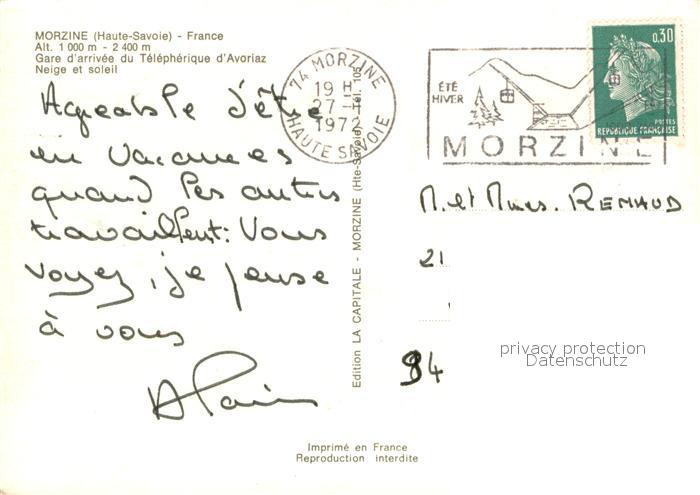 MORZINE (Haute-Savoie) - France
Alt. 1 000 m - 2 400 m
Gare d'arrivée du Téléphérique d'Avoriaz
Neige et soleil
Agréable d'être
en vacances
quand les autres
travaillent: Vous
voyez, je pense
à vous
Alain
74 MORZINE
19 H
27 -
1972
HAUTE SAVOIE
ÉTÉ
HIVER
MORZINE
0,30
POSTES
REPUBLIQUE FRANÇAISE
M. et Mmes. RENAUD
21
94
Edition LA CAPITALE - MORZINE (Hte-Savoie) Tél. 105
privacy protection
Datenschutz
Imprimé en France
Reproduction interdite